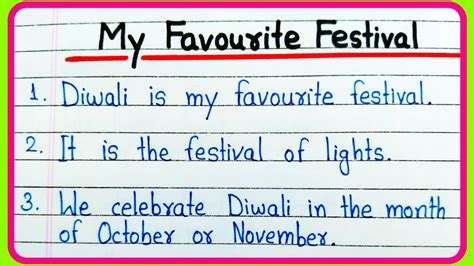 My Favourite Festival
1. Diwali is my favourite festival.
2. It is the festival of lights.
3. We celebrate Diwali in the month
of October or November.